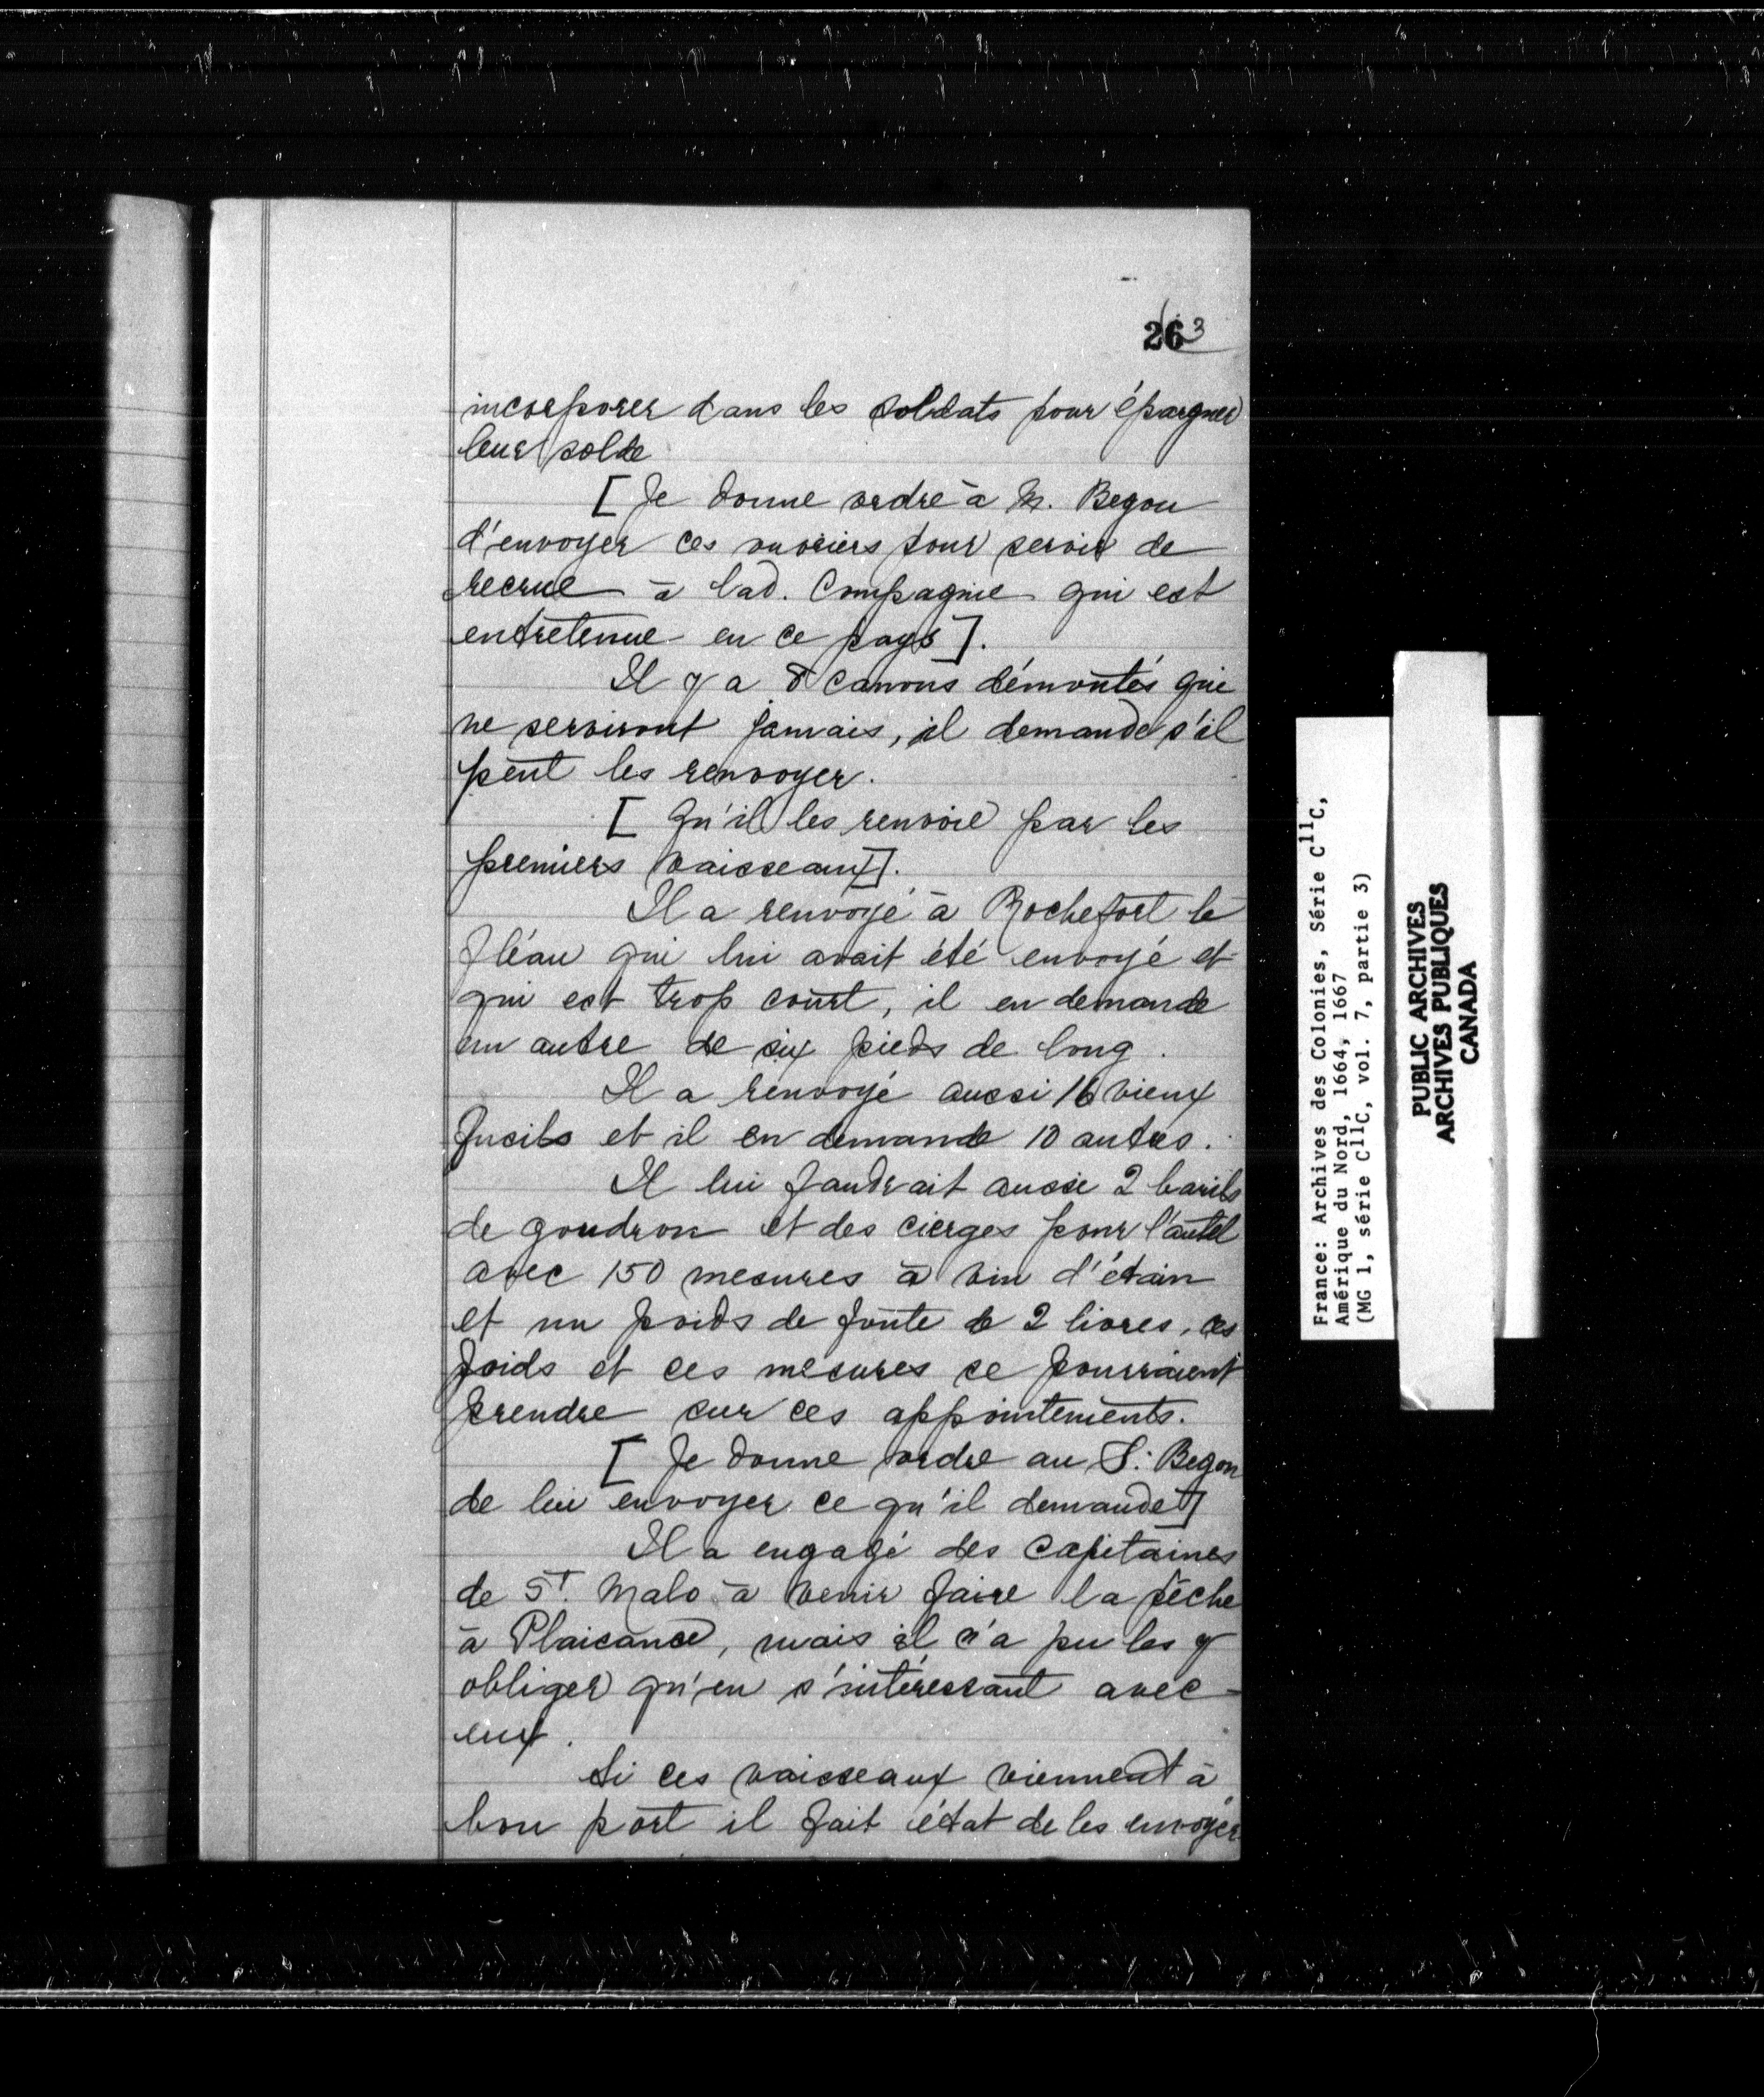 263
incorporer dans les soldats pour épargner
leur solde
[Je donne ordre à M. Begon
d'envoyer ces ouvriers pour servir de
recrue à lad. Compagnie qui est
entretenue en ce pays].
Il y a 8 canons démontés qui
ne serviront jamais, il demande s'il
peut les renvoyer.
[Qu'il les renvoie par les
premiers vaisseaux].
Il a renvoyé à Rochefort le
fléau qui lui avait été envoyé et
qui est trop court, il en demande
un autre de six pieds de long.
Il a renvoyé aussi 16 vieux
fusils et il en demande 10 autres.
Il lui faudrait aussi 2 barils
de goudron et des cierges pour l'autel
avec 150 mesures à vin d'étain
et un poids de fonte de 2 livres, ces
poids et ces mesures se pourraient
prendre sur ces appointements.
[Je donne ordre au S. Begon
de lui envoyer ce qu'il demande]
Il a engagé des capitaines
de St. Malo à venir faire la pêche
à Plaisance, mais il n'a pu les y
obliger qu'en s'intéressant avec
eux.
Si ces vaisseaux viennent à
bon port il fait état de les envoyer
France: Archives des Colonies, Série C11C,
Amérique du Nord, 1664, 1667
(MG 1, série C11C, vol. 7, partie 3)
PUBLIC ARCHIVES
ARCHIVES PUBLIQUES
CANADA